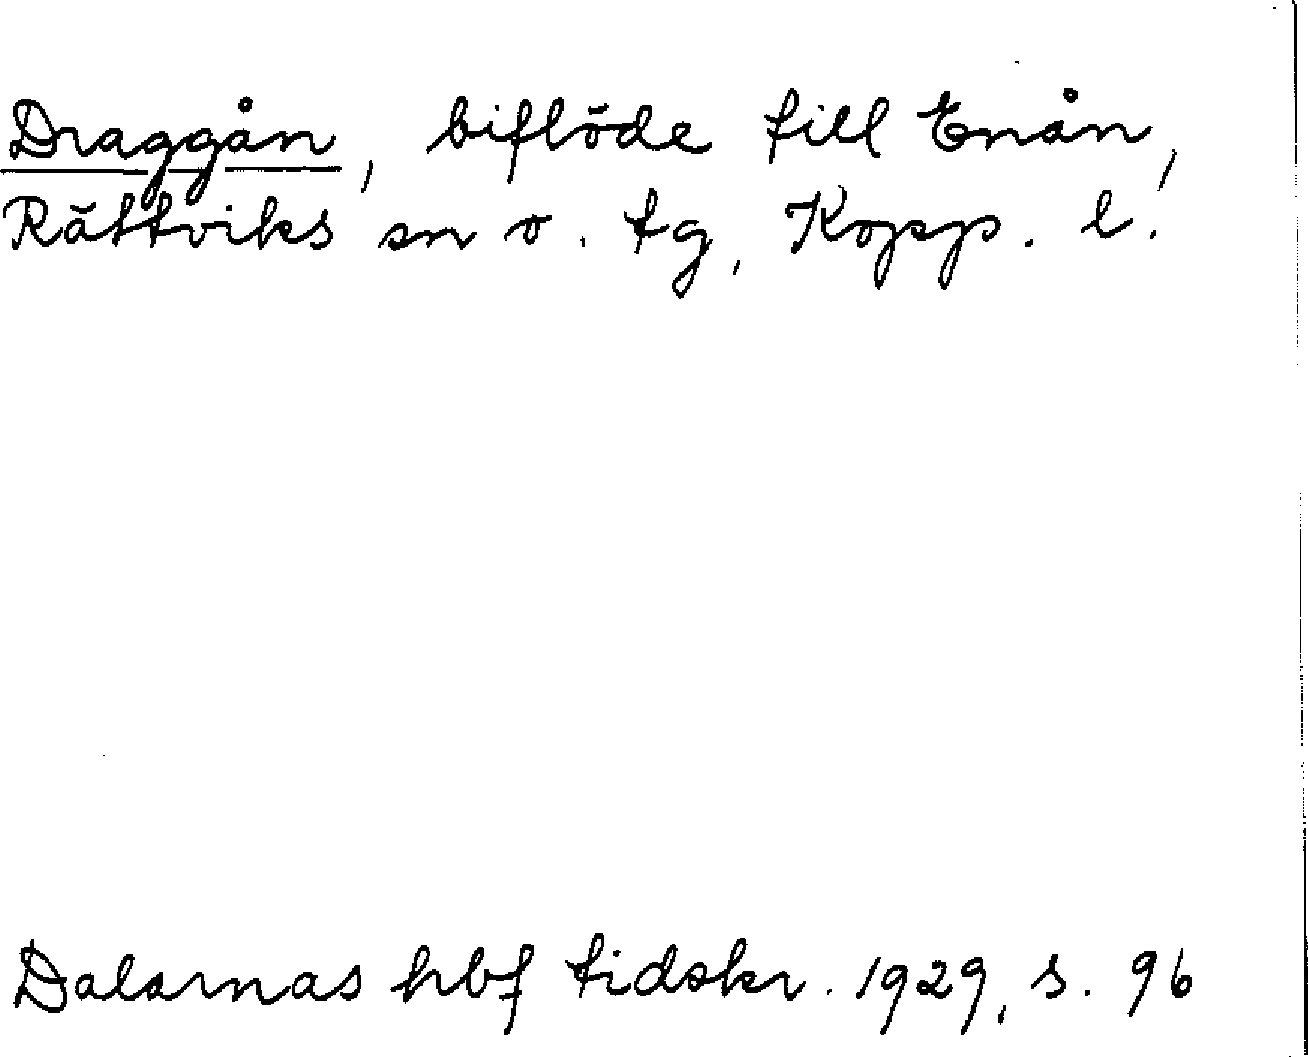 Draggån, biflöde till Enån,
Rättviks sn o. tg, Kopp. l.
Dalarnas hbf tidskr. 1929, s. 96